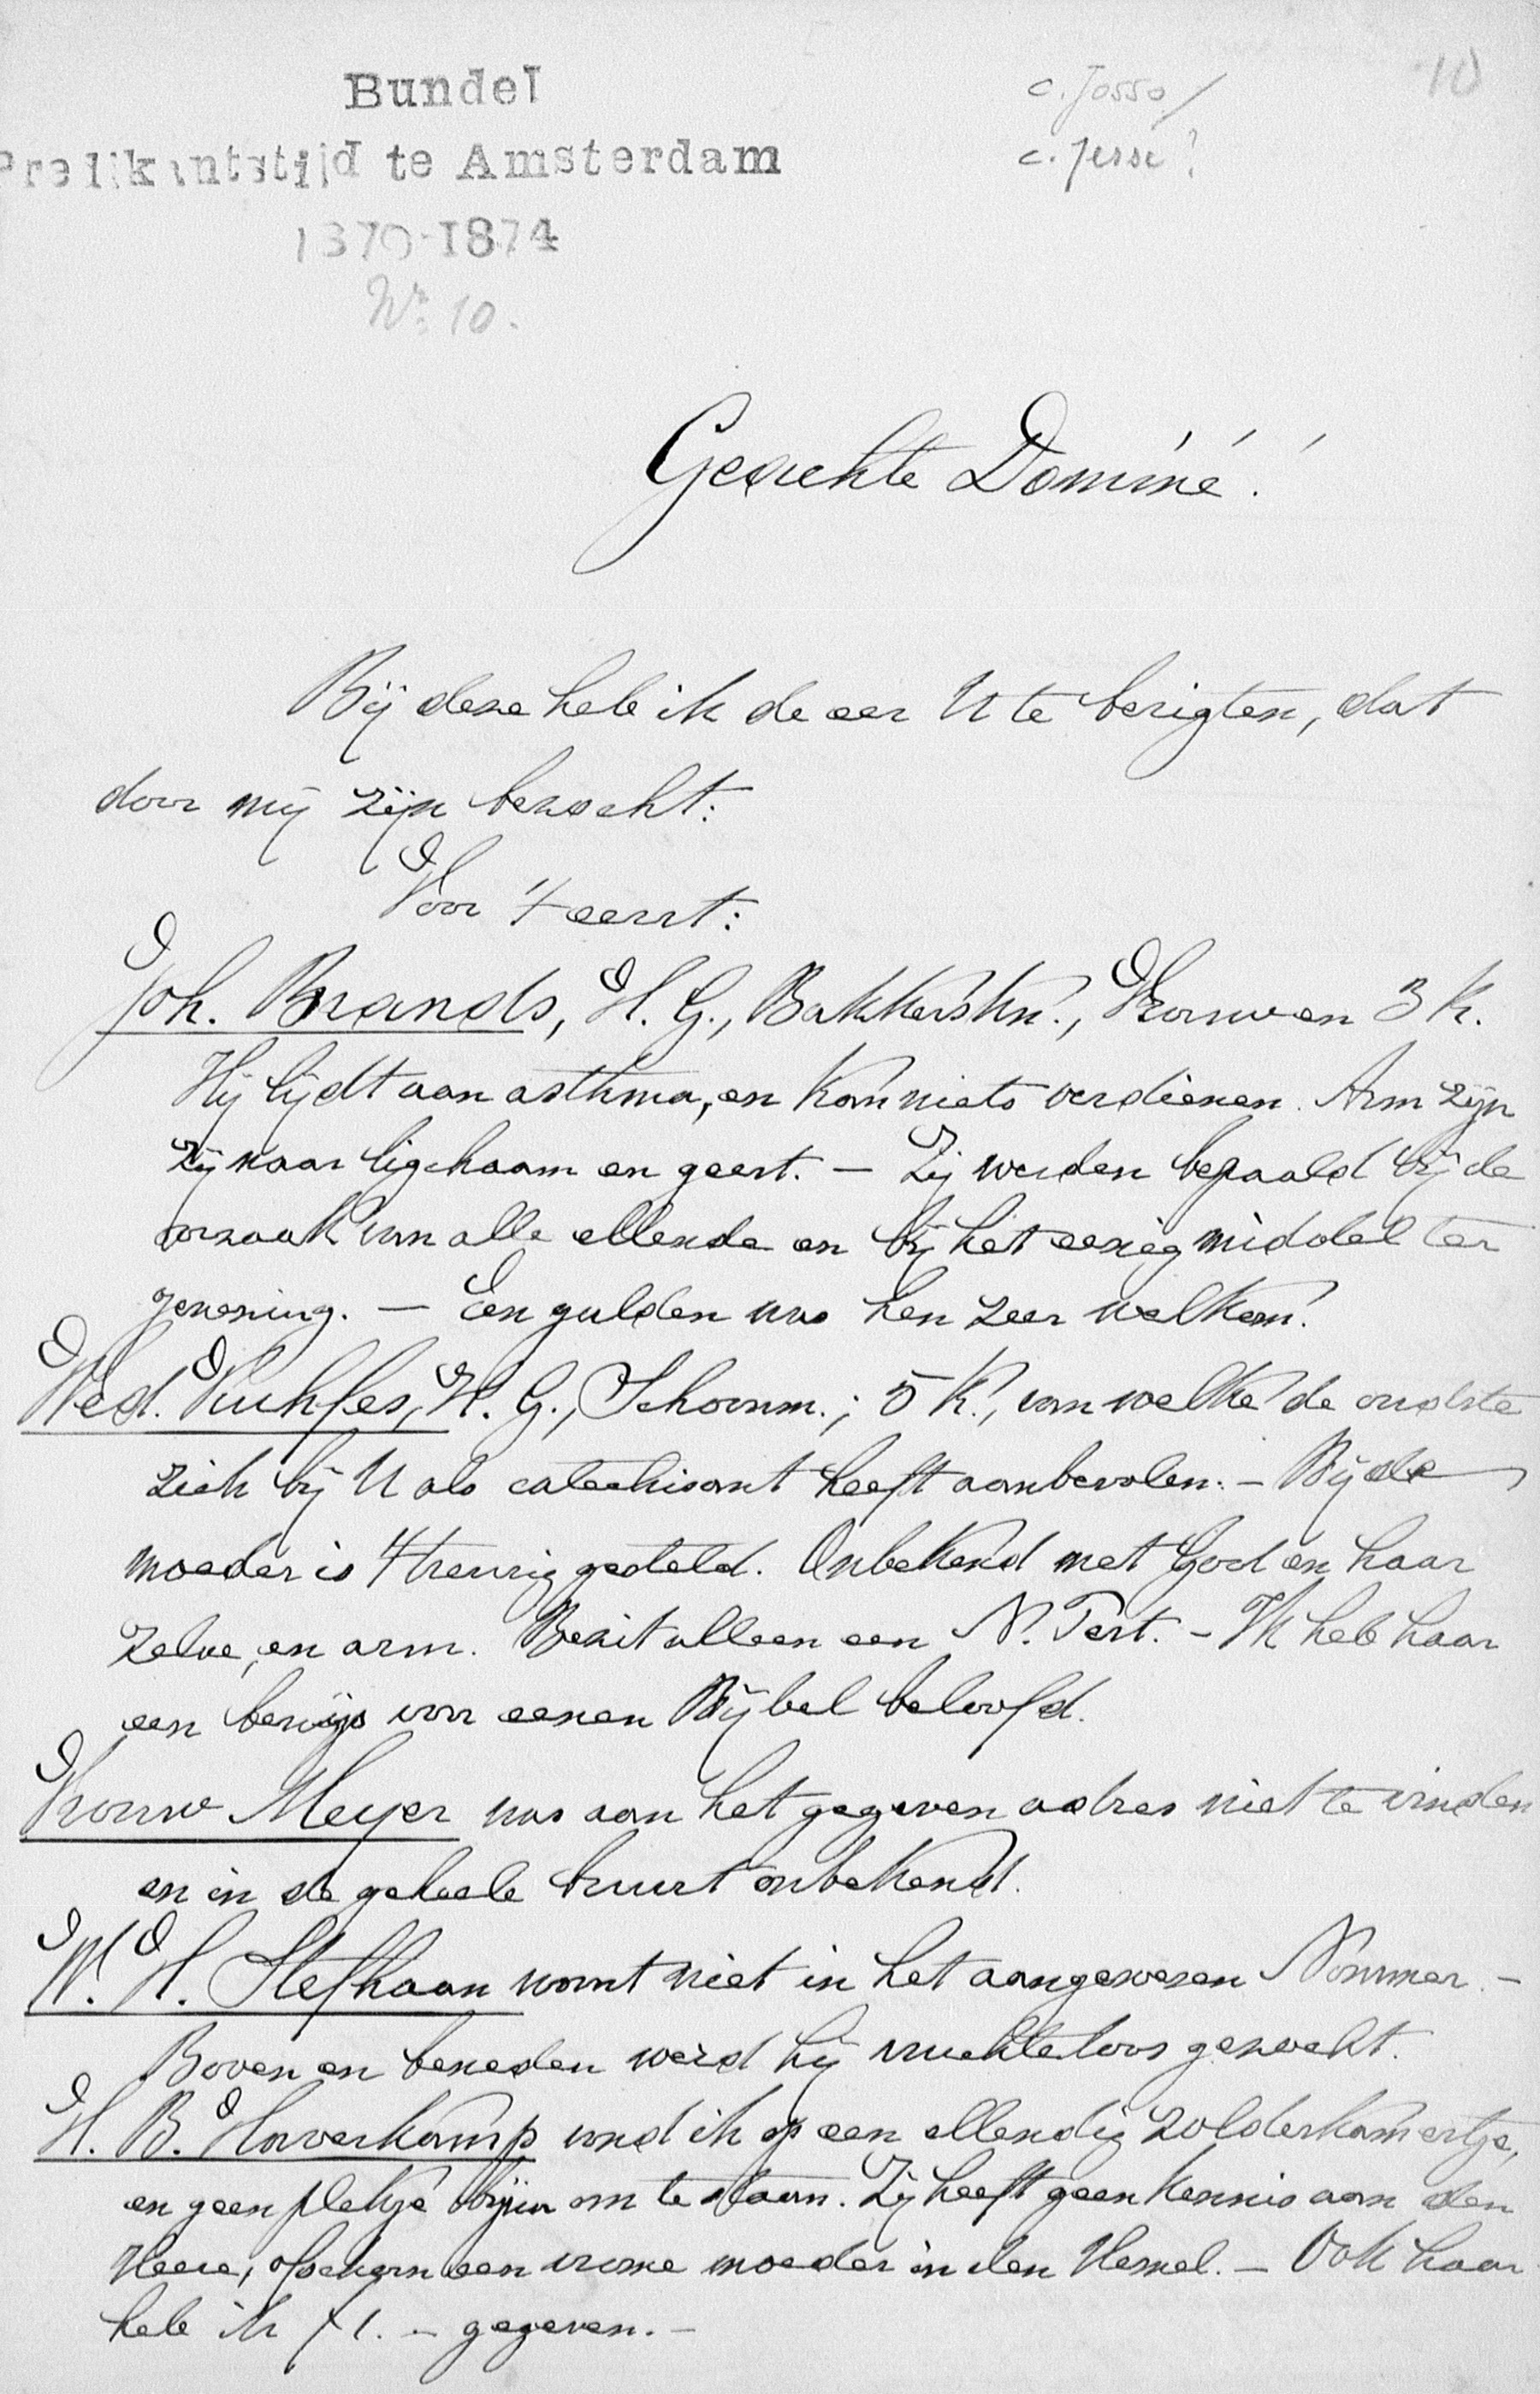 Bundel
Predikantstijd te Amsterdam
1870-1874
Nº 10.
c. Josso/
c. Jesse?
10
Geachte Dominé!
Bij deze heb ik de eer U te berigten, dat
door mij zijn bezocht:
Voor 't eerst:
Joh. Brands, H. G., Bakkerskn., Vrouw en 3 K.
Hij lijdt aan asthma, en kan niets verdienen. Arm zijn
zij naar ligchaam en geest. – Zij werden bepaald bij de
oorzaak van alle ellende en bij het eenig middel ter
genezing. – Een gulden was hen zeer welkom.
Wed. Kuhfes, H. G., Schoonm.; 5 K., van welke de oudste
zich bij U als catechisant heeft aanbevolen. – Bij de
moeder is 't treurig gesteld. Onbekend met God en haar
zelve, en arm. Bezit alleen een N. Test. – Ik heb haar
een bewijs voor eenen Bijbel beloofd.
Vrouw Meyer was aan het gegeven adres niet te vinden
en in de geheele buurt onbekend.
W. H. Stefhaan woont niet in het aangewezen Nommer. –
Boven en beneden werd hij vruchteloos gezocht.
H. B. Haverkamp vond ik op een ellendig zolderkamertje,
en geen plekje bijna om te staan. Zij heeft geen kennis aan den
Heere, ofschoon een vrome moeder in den Hemel. – Ook haar
heb ik f 1. – gegeven. –